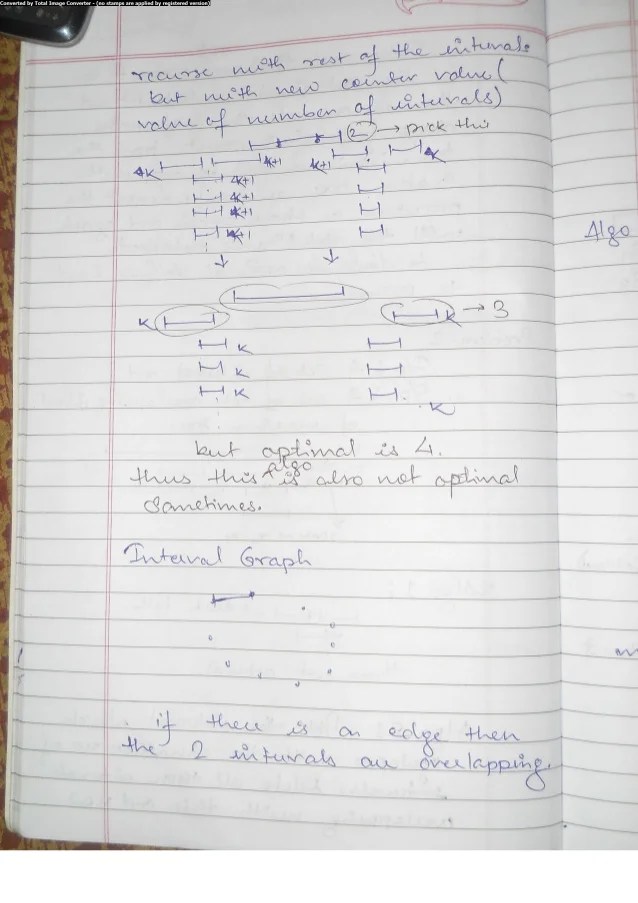 Converted by Total Image Converter - (no stamps are applied by registered version)
recurse with rest of the intervals
but with new counter value (
value of number of intervals)
2 → pick this
4K K+1 K+1 K
K+1
K+1
K+1
K+1
Algo
K K → 3
K
K
K
K
but optimal is 4.
Algo
thus this is also not optimal
sometimes.
Interval Graph
if there is an edge then
the 2 intervals are overlapping.